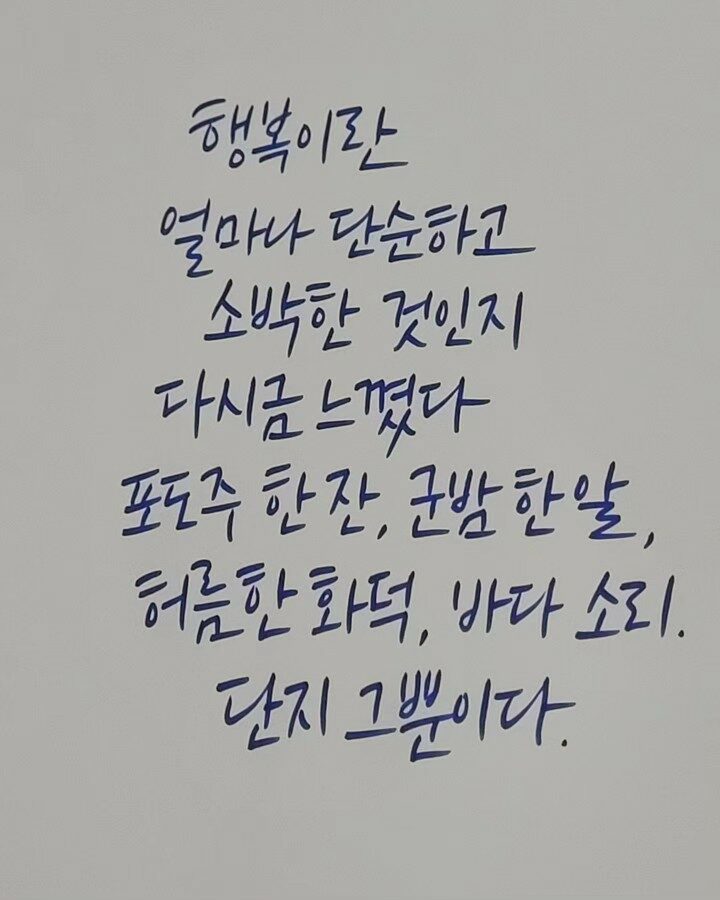 행복이란
얼마나 단순하고
소박한 것인지
다시금 느꼈다
포도주 한 잔, 군밤 한 알,
허름한 화덕, 바다 소리.
단지 그뿐이다.